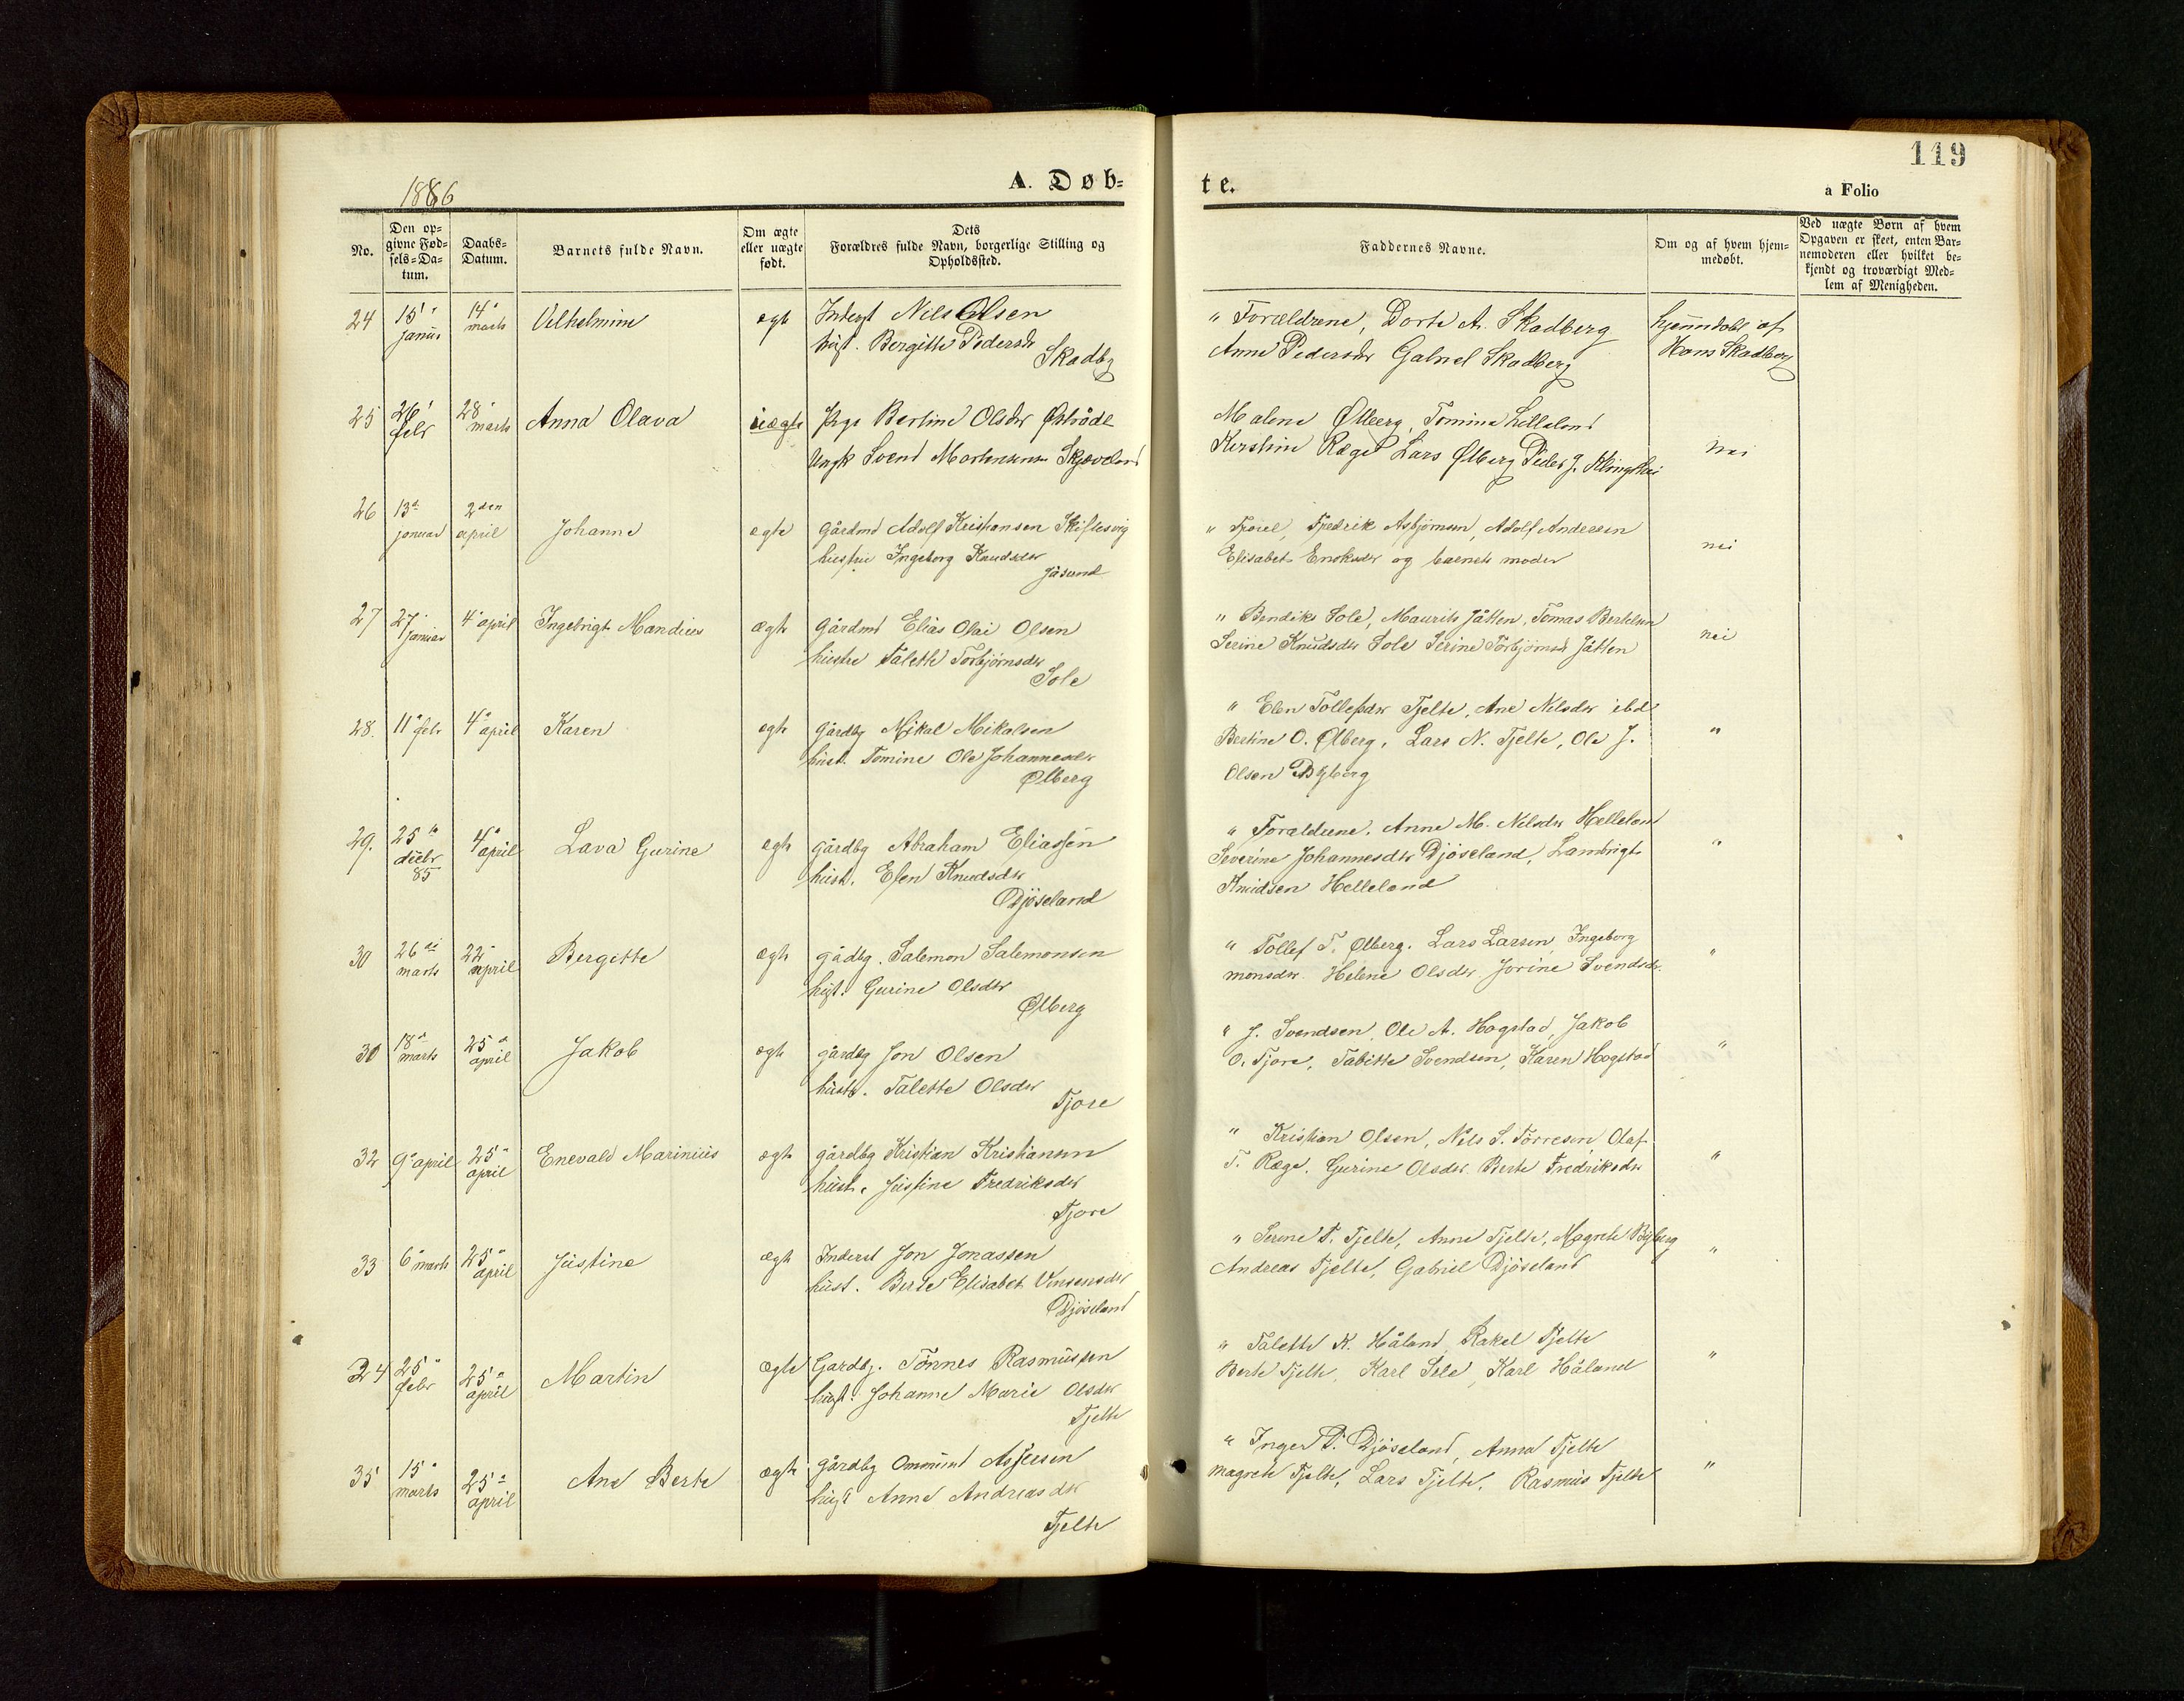 119
1886
A. Døb=
te.
a Folio
No.
Den op=
givne Fød=
sels=Da=
tum.
Daabs=
Datum.
Barnets fulde Navn.
Om ægte
eller uægte
født.
Dets
Forældres fulde Navn, borgerlige Stilling og
Opholdssted.
Faddernes Navne.
Om og af hvem hjem=
medøbt.
Ved uægte Børn af hvem
Opgaven er skeet, enten Bar=
nemoderen eller hvilket be=
kjendt og troværdigt Med=
lem af Menigheden.
24 15' januar 14' marts Vilhelmine ægte Inderst Nils Olsen
hust. Bergitte Pedersdr
Skadbg
" Forældrene, Dorte A. Skadberg
Anne Pedersdr Gabriel Skadberg
hjemdøbt af
Hans Skadberg
25 26' febr 28' marts Anna Olava uægte Pige Bertine Olsdr Østråde
Ungk Svend Mortensen Skjæveland
Malene Ølberg, Tomine Lilleland
Kerstine Ræge Lars Ølberg Peder J. Klingshei
nei
26 13de januar 2den april Johanne ægte Gårdmd Adolf Kristiansen Skiftesvig
hustru Ingeborg Knudsdr
Jåsund
" Fredrik Asbjørnsen, Adolf Andersen
Elisabet Enoksdr og barnets moder
nei
27 27' januar 4' april Ingebrigt Mandius ægte Gårdmd Elias Olai Olsen
hustru Talette Torbjørnsdr
Sole
" Bendiks Sole, Maurits Jåtten, Tomas Bertelsen
Serine Knudsdr Sole Serine Torbjørnsd Jåtten
nei
28. 11' febr 4' april Karen ægte gårdbg Mikal Mikalsen
hust. Tomine Ole Johannesdr
Ølberg
" Elen Tollefsdr Tjelte, Ane Nilsdr ibd
Bertine O. Ølberg, Lars N. Tjelte, Ole J.
Olsen Byberg
"
29. 25de decbr 85 4' april Lava Gurine ægte gårdbg Abraham Eliassen
hust. Elen Knudsdr
Djøseland
" Forældrene, Anne M. Nilsdr Helleland
Severine Johannesdr Djøseland, Lambrigt
Knudsen Helleland
"
30 26de marts 22' april Bergitte ægte gådbg. Salemon Salemonsen
hust. Gurine Olsdr
Ølberg
" Tollef T. Ølberg. Lars Larsen, Ingeborg
monsdr. Helene Olsdr, Jorine Svendsdr.
"
30 18' marts 25' april Jakob ægte gårdbg Jon Olsen
hust. Talette Olsdr
Tjore
" J. Svendsen Ole A. Hogstad, Jakob
O. Tjore, Tabitte Svendsen, Karen Hogstad
"
32 9' april 25' april Enevald Marinius ægte gårdbg Kristian Kristiansen
hust. Justine Fredriksdr
Tjore
" Kristian Olsen, Nils S. Torresen Olaf
T. Ræge. Gurine Olsdr. Berte Fredriksdr
"
33 6' marts 25' april Justine ægte Inderst Jon Jonassen
hust. Berte Elisabet Vinsensdr
Djøseland
" Serene T. Tjelte, Anne Tjelte, Magrete Byberg
Andreas Tjelte, Gabriel Djøseland
"
24 25' febr 25' april Martin ægte Gardbg. Tønnes Rasmussen
hust. Johanne Marie Olsdr
Tjelte
" Talette K. Håland, Rakel Tjelte
Berte Tjelte, Karl Sele, Karl Håland
"
35 15' marts 25' april Ane Berte ægte gårdbg Ommund Assersen
hust Anne Andreasdr
Tjelte
" Inger T. Djøseland, Anna Tjelte
Magrete Tjelte, Lars Tjelte, Rasmus Tjelte
"